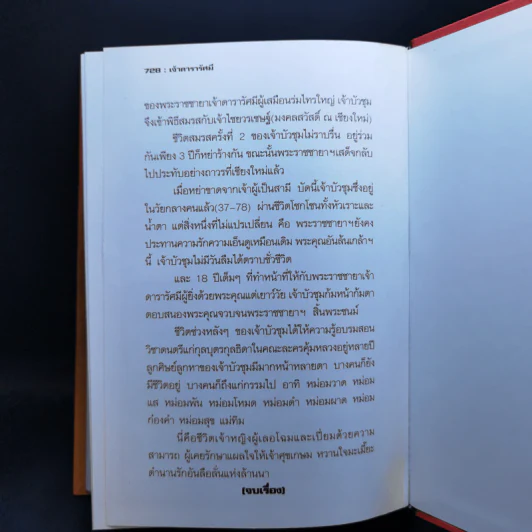 728 : เจ้าดารารัศมี
ของพระราชชายาเจ้าดารารัศมีผู้เสมือนร่มไทรใหญ่ เจ้าบัวชุม
จึงเข้าพิธีสมรสกับเจ้าไชยวรเชษฐ์(มงคลสวัสดิ์ ณ เชียงใหม่)
ชีวิตสมรสครั้งที่ 2 ของเจ้าบัวชุมไม่ราบรื่น อยู่ร่วม
กันเพียง 3 ปีก็หย่าร้างกัน ขณะนั้นพระราชชายาฯเสด็จกลับ
ไปประทับอย่างถาวรที่เชียงใหม่แล้ว
เมื่อหย่าขาดจากเจ้าผู้เป็นสามี บัดนี้เจ้าบัวชุมซึ่งอยู่
ในวัยกลางคนแล้ว(37-78) ผ่านชีวิตโชกโชนทั้งหัวเราะและ
น้ำตา แต่สิ่งหนึ่งที่ไม่แปรเปลี่ยน คือ พระราชชายาฯยังคง
ประทานความรักความเอ็นดูเหมือนเดิม พระคุณอันล้นเกล้าฯ
นี้ เจ้าบัวชุมไม่มีวันลืมได้ตราบชั่วชีวิต
และ 18 ปีเต็มๆ ที่ทำหน้าที่ให้กับพระราชชายาเจ้า
ดารารัศมีผู้ยิ่งด้วยพระคุณแต่เยาว์วัย เจ้าบัวชุมก้มหน้าก้มตา
ตอบสนองพระคุณจวบจนพระราชชายาฯ สิ้นพระชนม์
ชีวิตช่วงหลังๆ ของเจ้าบัวชุมได้ให้ความรู้อบรมสอน
วิชาดนตรีแก่กุลบุตรกุลธิดาในคณะละครคุ้มหลวงอยู่หลายปี
ลูกศิษย์ลูกหาของเจ้าบัวชุมมีมากหน้าหลายตา บางคนก็ยัง
มีชีวิตอยู่ บางคนก็ถึงแก่กรรมไป อาทิ หม่อมวาด หม่อม
แส หม่อมพัน หม่อมโหมด หม่อมดำ หม่อมผาด หม่อม
ก่องคำ หม่อมสุข แม่ทิม
นี่คือชีวิตเจ้าหญิงผู้เลอโฉมและเปี่ยมด้วยความ
สามารถ ผู้เคยรักษาแผลใจให้เจ้าศุขเกษม หวานใจมะเมี๊ยะ
ตำนานรักอันลือลั่นแห่งล้านนา
(จบเรื่อง)